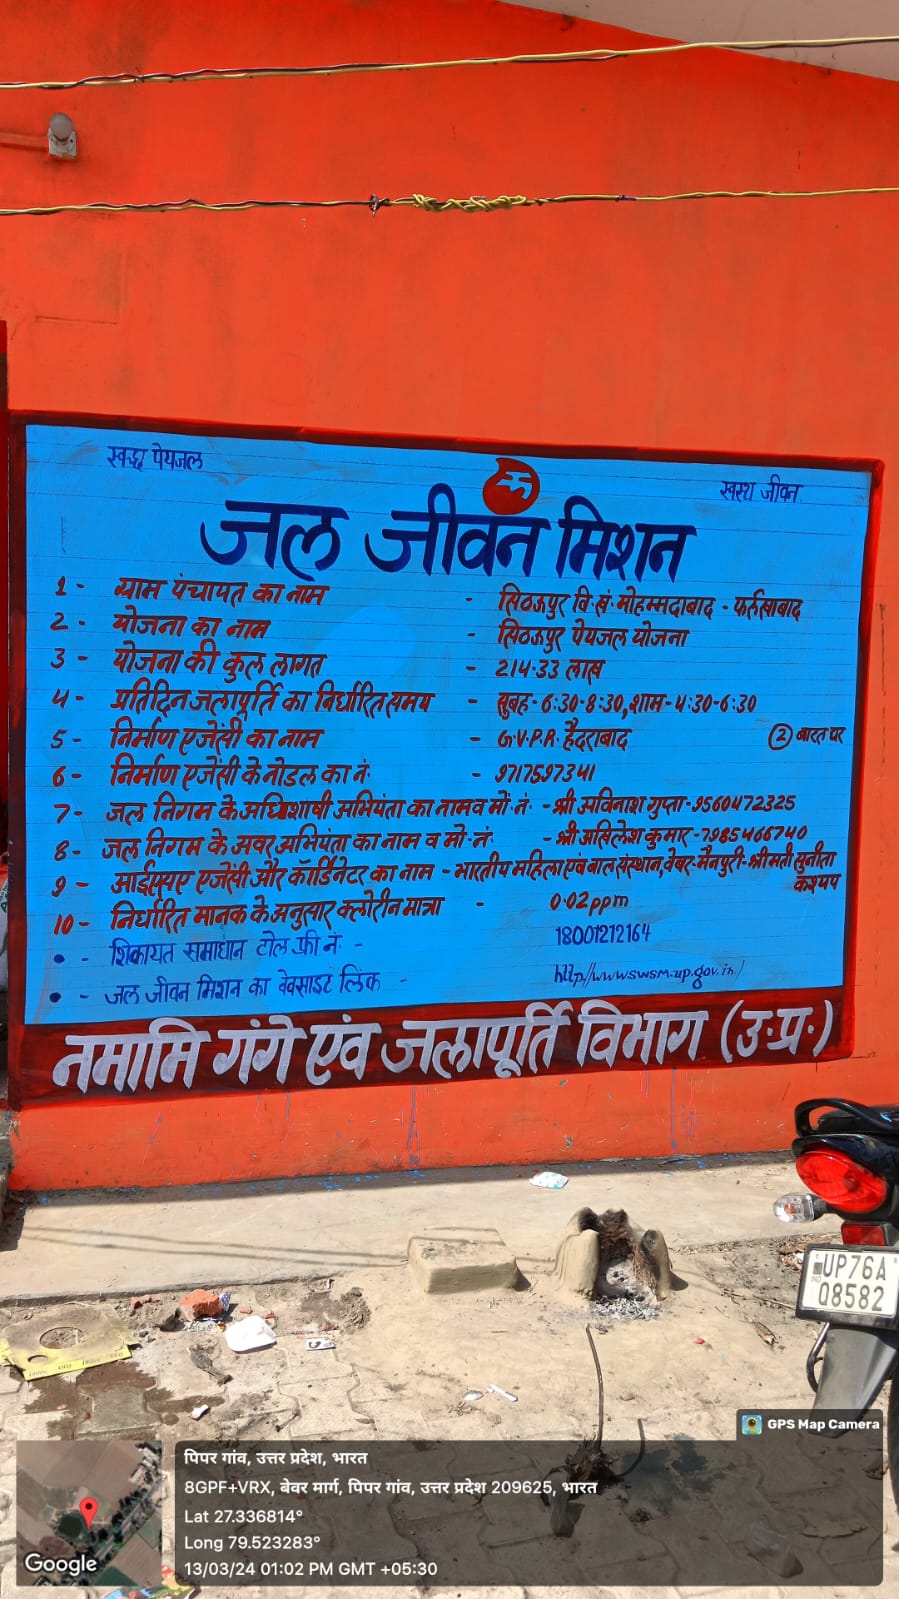 स्वच्छ पेयजल
स्वस्थ जीवन
जल जीवन मिशन
1 - ग्राम पंचायत का नाम - सिठऊपुर वि.खं. मोहम्मदाबाद - फर्रुखाबाद
2 - योजना का नाम - सिठऊपुर पेयजल योजना
3 - योजना की कुल लागत - 214.33 लाख
4 - प्रतिदिन जलापूर्ति का निर्धारित समय - सुबह-6:30-8:30, शाम-4:30-6:30
5 - निर्माण एजेंसी का नाम - G.V.P.R. हैदराबाद
② बारतघर
6 - निर्माण एजेंसी के नोडल का नं. - 9717597341
7 - जल निगम के अधिशाषी अभियंता का नाम व मो. नं. - श्री अविनाश गुप्ता - 9560472325
8 - जल निगम के अवर अभियंता का नाम व मो. नं. - श्री अखिलेश कुमार - 7985466740
9 - आईएसए एजेंसी और कॉर्डिनेटर का नाम - भारतीय महिला एवं बाल संस्थान, बेबर-मैनपुरी - श्रीमती सुनीता
कश्यप
10 - निर्धारित मानक के अनुसार क्लोरीन मात्रा - 0.02ppm
• - शिकायत समाधान टोल फ्री नं. - 18001212164
• - जल जीवन मिशन का वेबसाइट लिंक - http//www.swsm.up.gov.in/
नमामि गंगे एंव जलापूर्ति विभाग (उ.प्र.)
UP76A
Q8582
GPS Map Camera
पिपर गांव, उत्तर प्रदेश, भारत
8GPF+VRX, बेवर मार्ग, पिपर गांव, उत्तर प्रदेश 209625, भारत
Lat 27.336814°
Long 79.523283°
13/03/24 01:02 PM GMT +05:30
Google